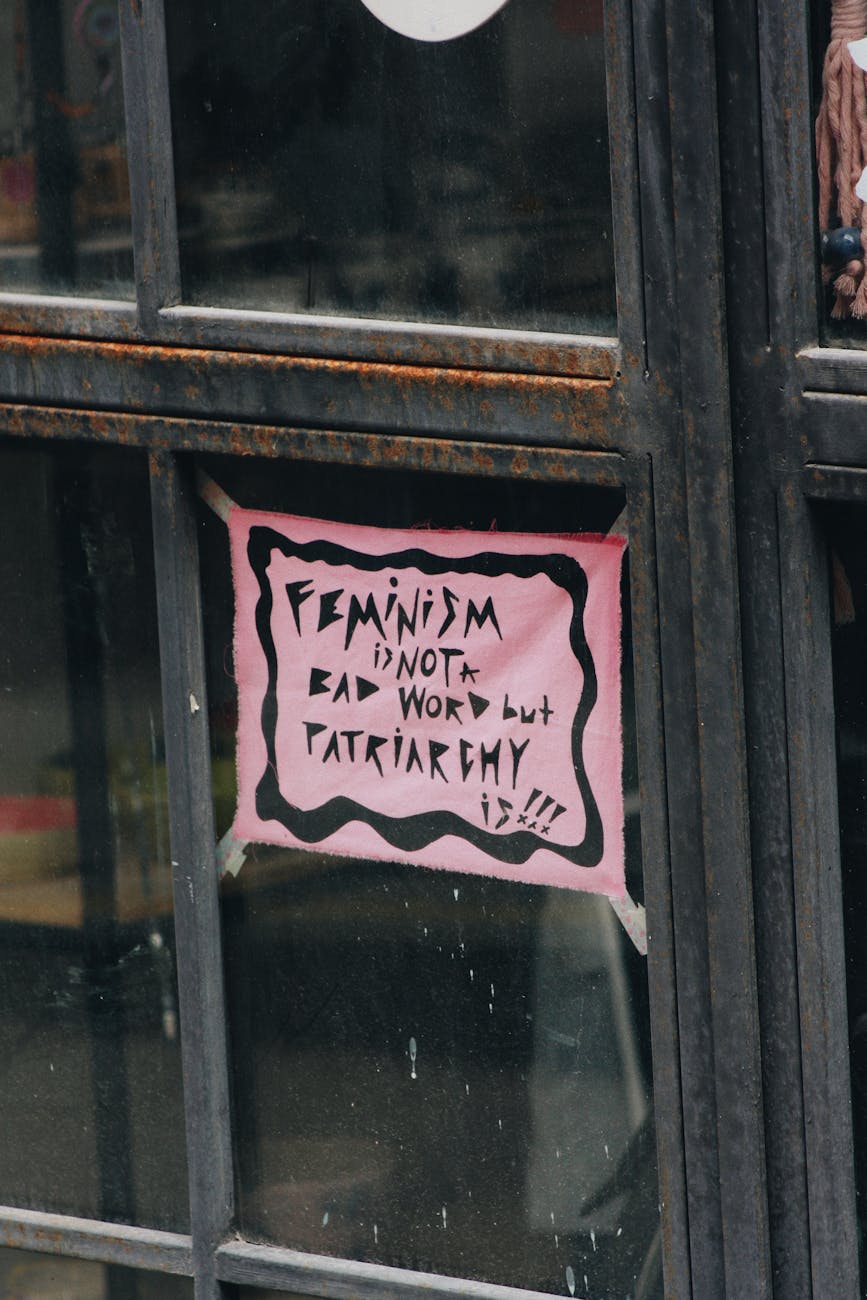 FEMiNiSM
is NOT A
BAD WORD but
PATRiARCHY
is!!!